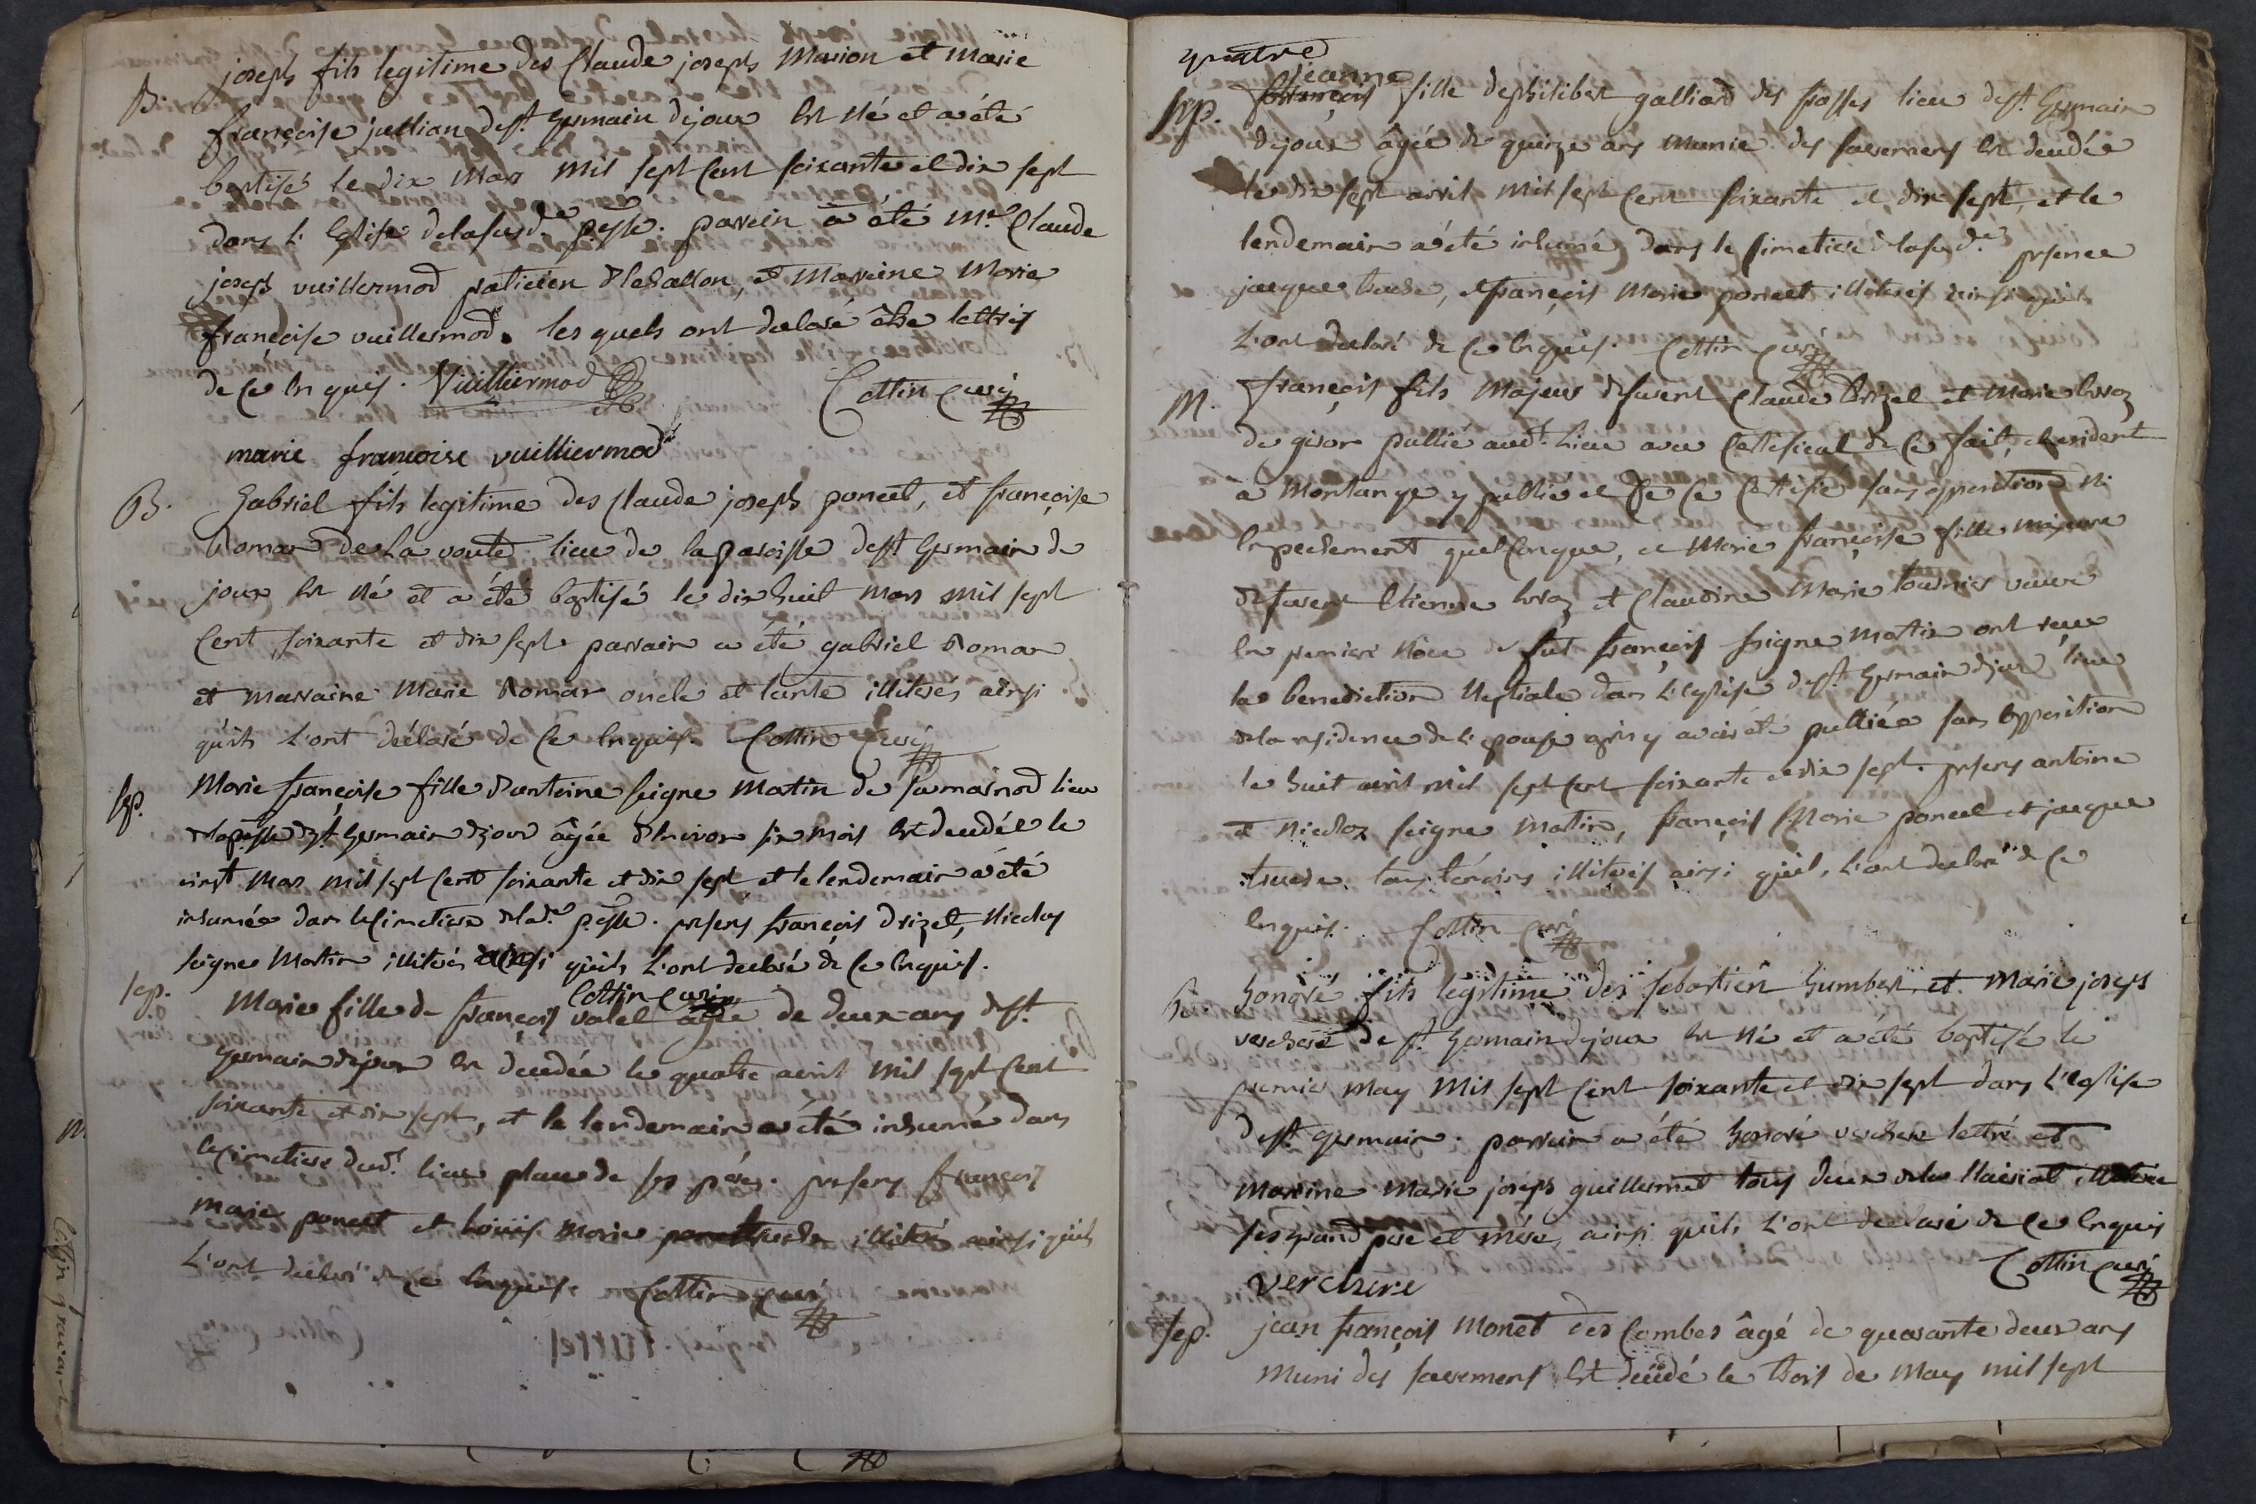 B. joseph fils legitime des Claude joseph Marion et Marie
françoise jullian de st. germain de joux est né et a été
baptisé le dix Mars mil sept cent soixante et dix sept
dans l'Eglise de la susd.e psse. parrein a été Mr. Claude
joseph vuillermod praticien, et Marreine Marie
françoise vuillermod. les quels ont declaré être lettrés
de ce Enquis. Vuilliermod Cottin curé
marie françoise vuilliermod
B. Gabriel fils legitime des Claude joseph poncet, et françoise
Romar de La voute lieu de la paroisse de st germain de
joux est né et a été baptisé le dix huit Mars mil sept
Cent soixante et dix sept parrain a été gabriel Romar
et marraine Marie Romar oncle et tante illiterés ainsi
qu'ils L'ont déclaré de ce Enquis. Cottin Curé
sep. Marie françoise fille d'antoine seigne Matin de lieu
de la psse de st. germain de joux âgée d'Environ six mois est decedée le
vingt Mars mil sept Cent soixante et dix sept et le lendemain a été
inhumée dans le Cimetiere de lad.e psse. presens françois drizet, Nicolas
seigne Matin illiterés ainsi qu'ils L'ont declaré de ce Enquis.
Cottin Curé
sep. Marie fille de françois valet âgée de deux ans de st.
germain de joux est decedée le quatre avril mil sept Cent
soixante et dix sept, et le lendemain a été inhumé dans
le Cimetiere dud.t lieu place de ses peres. presens françois
Marie poncet et Louis Marie illiterés ainsi qu'ils
L'ont declaré de ce Enquis. Cottin Curé
quatre
jeanne
sep. françois fille de philibert galliard des frasses lieu de st. Germain
de joux âgée de quinze ans munie des sacremens est decedée
le dix sept avril mil sept Cent soixante et dix sept, et le
lendemain a été inhumé dans le Cimetiere de la susd.e presence
jacques truche, et françois Marie poncet illiterés ainsi qu'ils
L'ont declaré de ce Enquis. Cottin Curé
M. françois fils Majeur de fuent Claude drizet et Marie
de giron publié aud.t Lieu avec Certificat de ce fait, et resident
a Montange y publié et de ce Certifié sans opposition ni
Empechement quelconque, et Marie françoise fille majeure
de fuent Etienne et Claudine Marie tournier veuve
En premiere Noce de fut françois seigne Matin ont reçue
la benediction Nuptiale dans L'eglise de st. germain de joux lieu
de la residence de L'epouse après y avoir été publiée sans opposition
le huit avril mil sept Cent soixante et dix sept. presens antoine
et Nicolas seigne Matin, françois Marie poncet et jacque
truche. tous témoins illiterés ainsi qu'ils L'ont declaré de ce
Enquis. Cottin Curé
B. honoré fils legitime des sebastien humbert et Marie joseph
verchere de st. germain de joux est né et a été baptisé le
premier may mil sept Cent soixante et dix sept dans L'eglise
de st. germain. parrain a été honoré verchere lettré et
Marrine Marie joseph guillermet tous deux de illiterée
ses grand pere et mére, ainsi qu'ils L'ont declaré de ce Enquis
verchere Cottin Curé
sep. jean françois Monet des Combes âgé de quarante deux ans
Muni des sacremens est decédé le trois de May mil sept